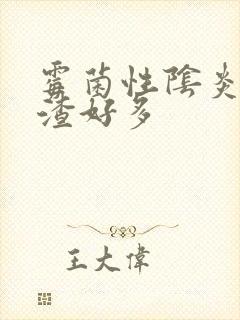 霉菌性陰炎
渣好多
王大偉